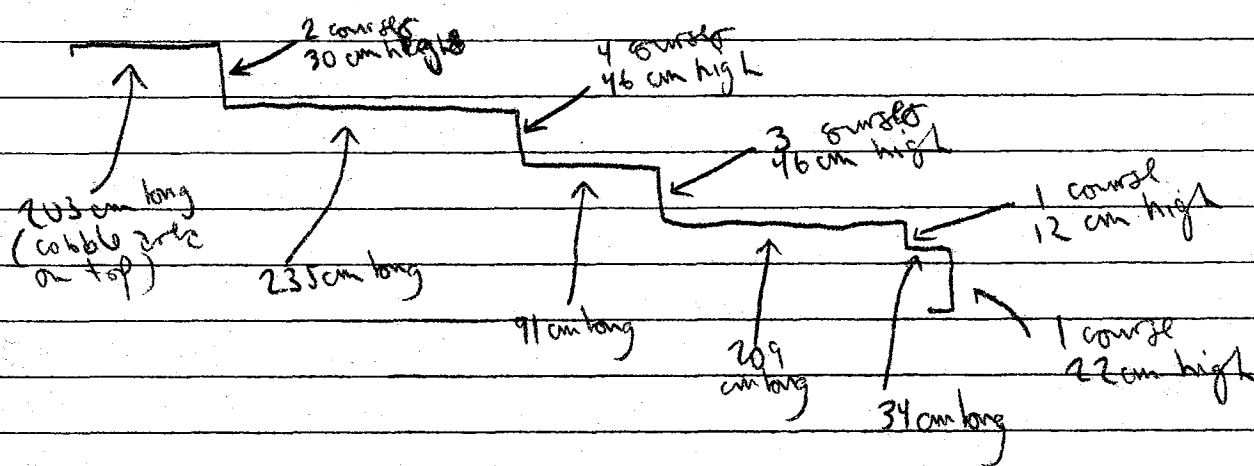 2 courses
30 cm high
4 courses
46 cm high
3 courses
46 cm high
1 course
12 cm high
203 cm long
(cobble area
on top)
235 cm long
91 cm long
209
cm long
34 cm long
1 course
22 cm high